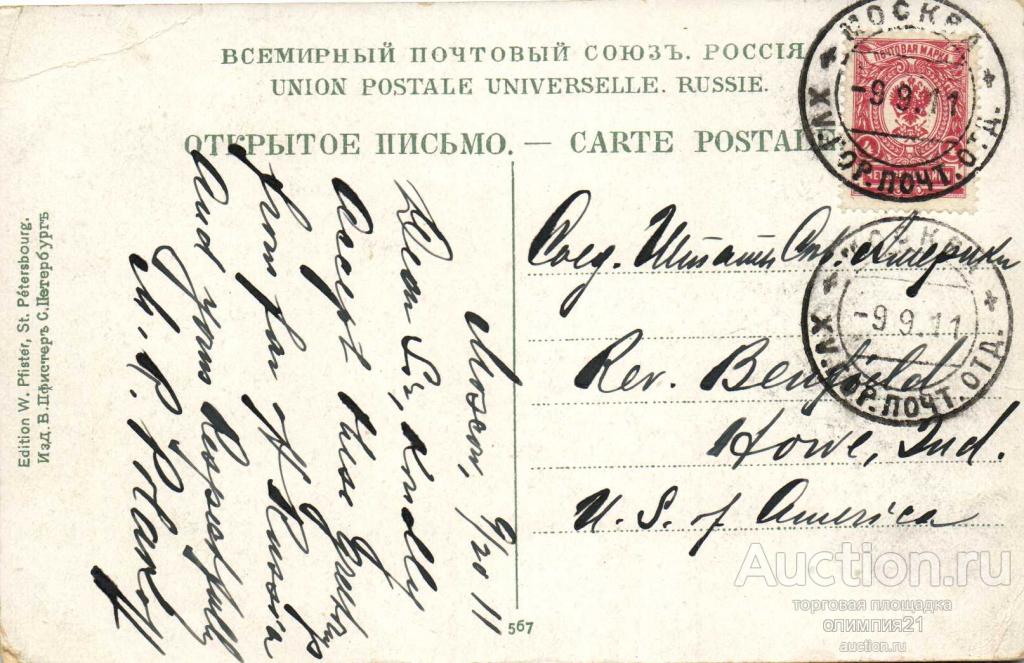 ВСЕМИРНЫЙ ПОЧТОВЫЙ СОЮЗЪ. РОССІЯ
UNION POSTALE UNIVERSELLE. RUSSIE.
ОТКРЫТОЕ ПИСЬМО. — CARTE POSTALE
МОСКВА
-9 9.11
XV. ГОР. ПОЧТ. ОТД.
ПОЧТОВАЯ МАРКА
Moscow, 9/20 11
Dear Sir, Kindly
Accept these Greetings
from far off Russia
And yours Respectfully
Соед. Штаты Сѣв. Америки
МОСКВА
-9 9.11
XV. ГОР. ПОЧТ. ОТД.
Rev. Benfield
Howe, Ind.
U. S. of America
Edition W. Pfister, St. Pétersbourg.
Изд. В. Пфистеръ С. Петербургъ
567
Auction.ru
торговая площадка
олимпия21
auction.ru